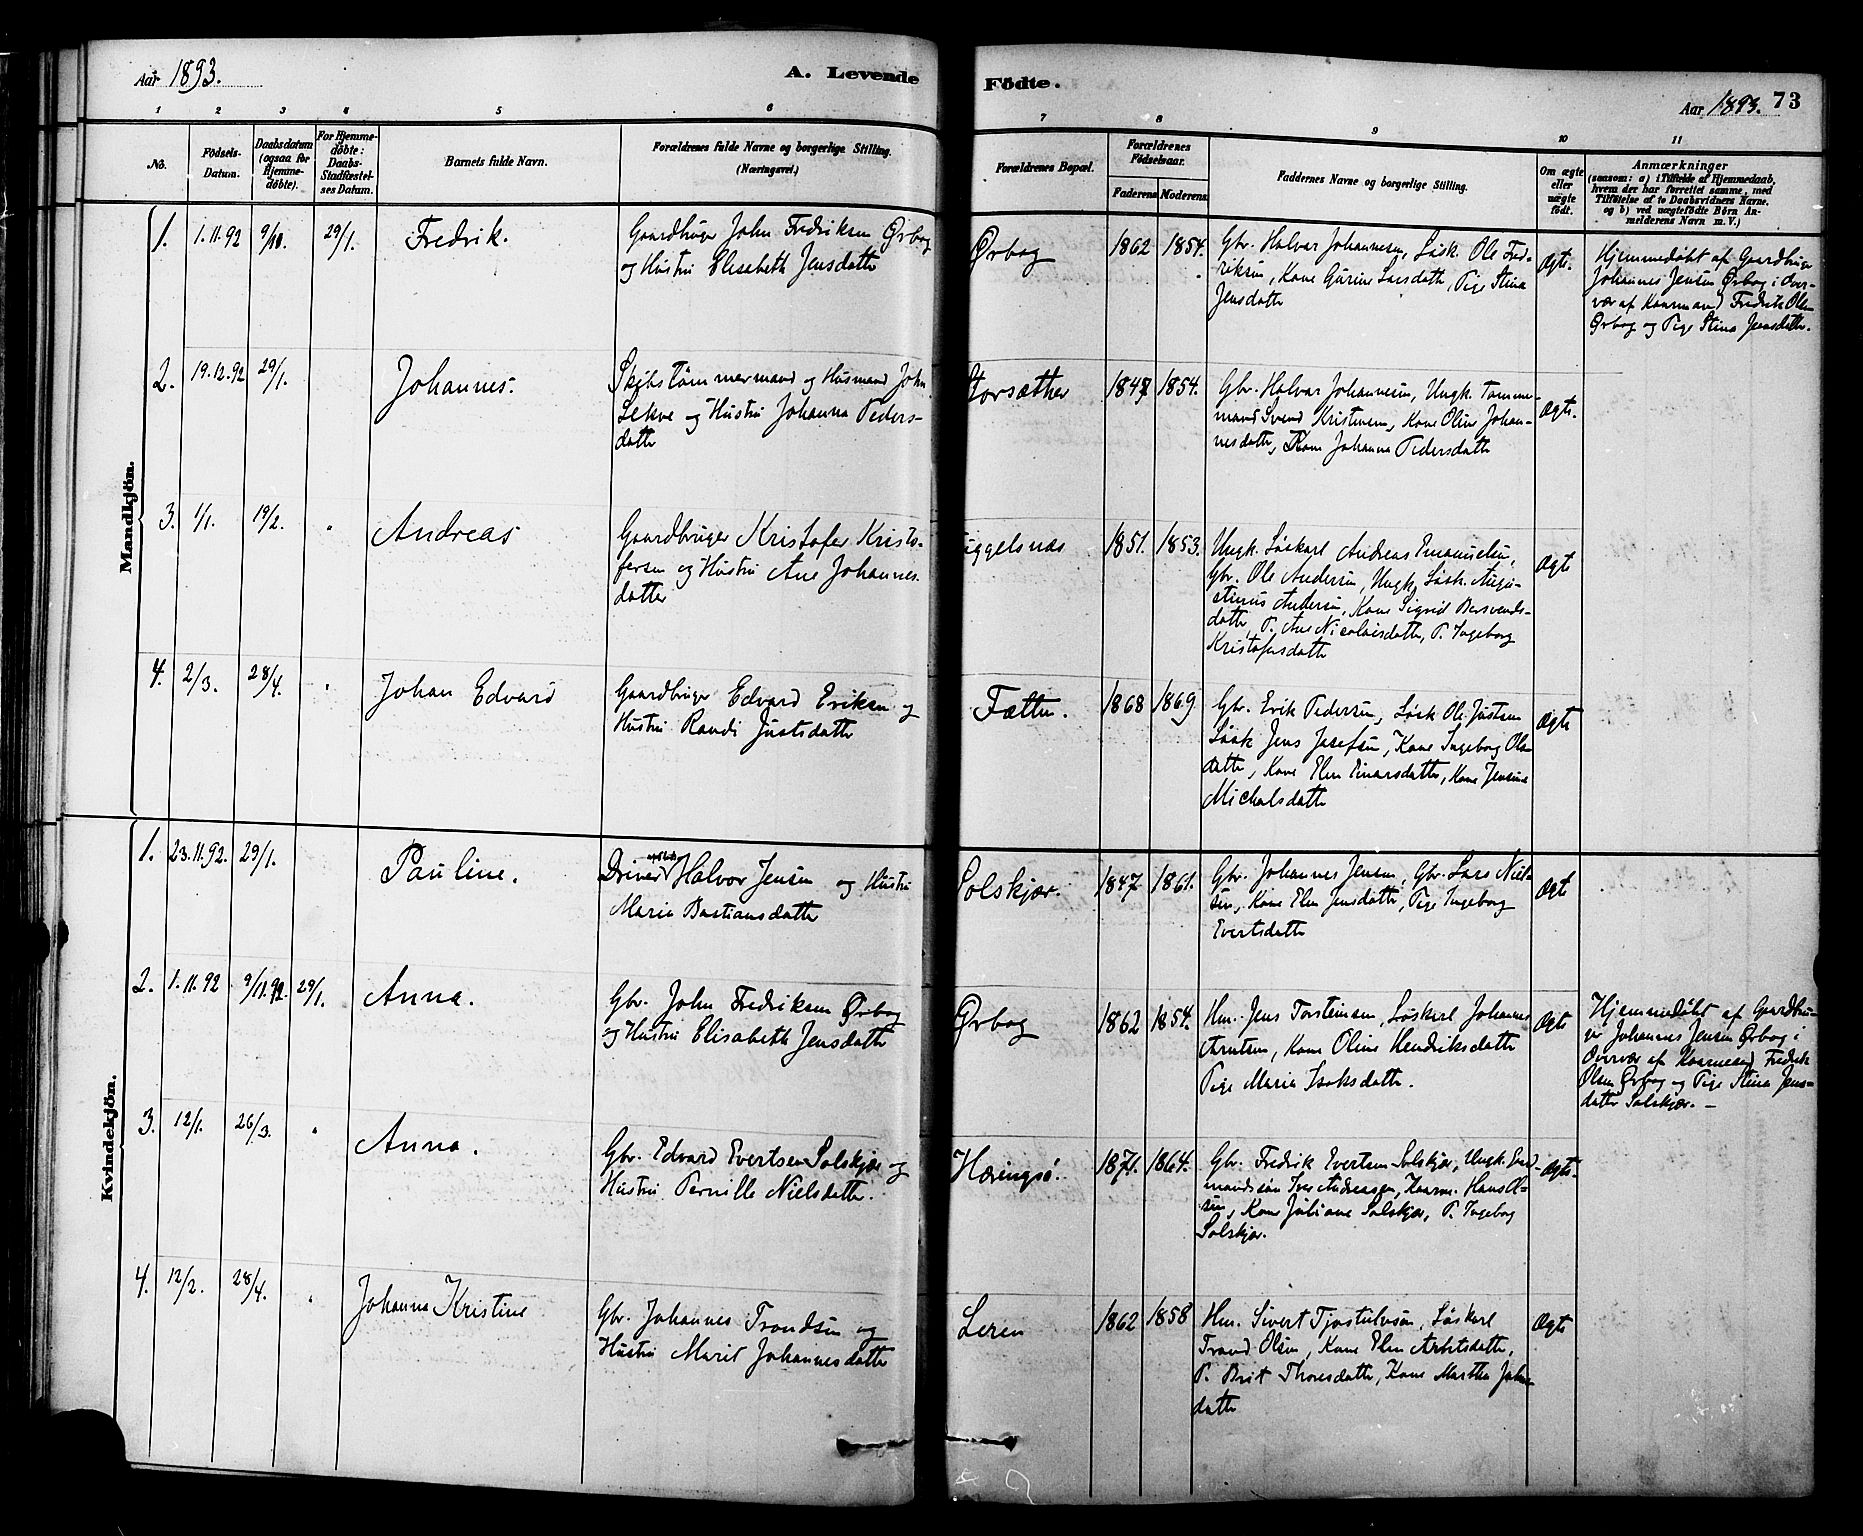 Aar 1893.
A. Levende
Födte.
Aar 1893.
73
1 2 3 4 5 6 7 8 9 10 11
No.
Födsels-
Datum.
Daabsdatum
(ogsaa for
Hjemme-
døbte).
For Hjemme-
døbte:
Daabs-
Stadfæstel-
ses Datum.
Barnets fulde Navn.
Forældrenes fulde Navne og borgerlige Stilling.
(Næringsvei.)
Forældrenes Bopæl.
Forældrenes
Födselsaar.
Faderens
Moderens
Faddernes Navne og borgerlige Stilling.
Om ægte
eller
uægte
født.
Anmærkninger
(saasom: a) i Tilfælde af Hjemmedaab,
hvem der har forrettet samme, med
Tilföielse af to Daabsvidners Navne.
og b) ved uægtefödte Börn An-
melderens Navn m. V.)
Mandkjön.
1. 1.11.92 29/1. Fredrik.
Gaardbruger John Fredriksen Ørbog
og Hustru Elisabeth Jensdatter
Ørbog 1862 1854.
Gbr. Halvar Johannesen, Løsk. Ole Fred-
riksen, Kone Gurine Larsdatter, Pige Stina
Jensdatter
Ægte.
Hjemmedøbt af Gaardbruger
Johannes Jensen Ørbog i Over-
vær af Kaarmand Fredrik Olsen
Ørbog og Pige Stina Jensdatter.
2. 19.12.92 29/1. Johannes.
Skibstømmermand og Husmand John
Lekve og Hustru Johanna Peders-
datter
Storsæther 1847 1854.
Gbr. Halvar Johannesen, Ungk. Tømme-
mand Svend Kristensen, Kone Oline Johan-
nesdatter, Kone Johanna Pedersdatter
Ægte.
3. 1/1. 19/2. " Andreas
Gaardbruger Kristofer Kristo-
fersen og Hustru Ane Johannes-
datter
uggelsnæs 1851. 1853.
Ungk. Løskarl Andreas Emanuelsen,
Gbr. Ole Andersen, Ungk. Løsk. Augu-
stinus Andersen, Kone Sigrid Bersvends-
datter, P. Ane Nicolaisdatter, P. Ingeborg
Kristofersdatter
Ægte
4. 2/3. 28/4. " Johan Edvard
Gaardbruger Edvard Eriksen og
Hustru Randi Justsdatter
Fætten. 1868 1869
Gbr. Erik Pedersen, Løsk Ole Justsen
Løsk Jens Josefsen, Kone Ingeborg Ols-
datter, Kone Elen Einarsdatter, Kone Jensine
Michalsdatter
Ægte
Kvindekjön.
1. 23.11.92. 29/1. Pauline.
Driver Halvor Jensen og Hustru
Maria Bastiansdatter
Solskjær. 1847 1861.
Gbr. Johannes Jensen, Gbr. Lars Niel-
sen, Kone Elen Jensdatter, Pige Ingeborg
Evertsdatter
Ægte
2. 1.11.92 9/11.92. 29/1. Anna.
Gbr. John Fredriksen Ørbog
og Hustru Elisabeth Jensdatter
Ørbog 1862 1854.
Hm. Jens Torstensen, Løskarl Johannes
Arntsen, Kone Oline Hendriksdatter
Pige Maria Isaksdatter.
Ægte
Hjemmedøbt af Gaardbru-
ger Johannes Jensen Ørbog i
Overvær af Kaarmand Fredrik
Olsen Ørbog og Pige Stina Jens-
datter Solskjær. —
3. 12/1. 26/3. " Anna.
Gbr. Edvard Evertsen Solskjær og
Hustru Pernille Nielsdatter.
Hæringsø. 1871. 1864.
Gbr. Fredrik Evertsen Solskjær, Ungk. Gaard-
mandssøn Iver Andreassen, Kaarm. Hans Ol-
sen, Kone Juliane Solskjær, P. Ingeborg
Solskjær.
Ægte.
4. 12/2. 28/4. " Johanna Kristine
Gbr. Johannes Trondsen og
Hustru Marit Johannesdatter
Leren 1862 1858
Hm. Sivert Tjostulvsen, Løskarl
Trond Olsen, Kone Elen Arntsdatter,
P. Brit Thoresdatter, Kone Martha Johns-
datter
Ægte